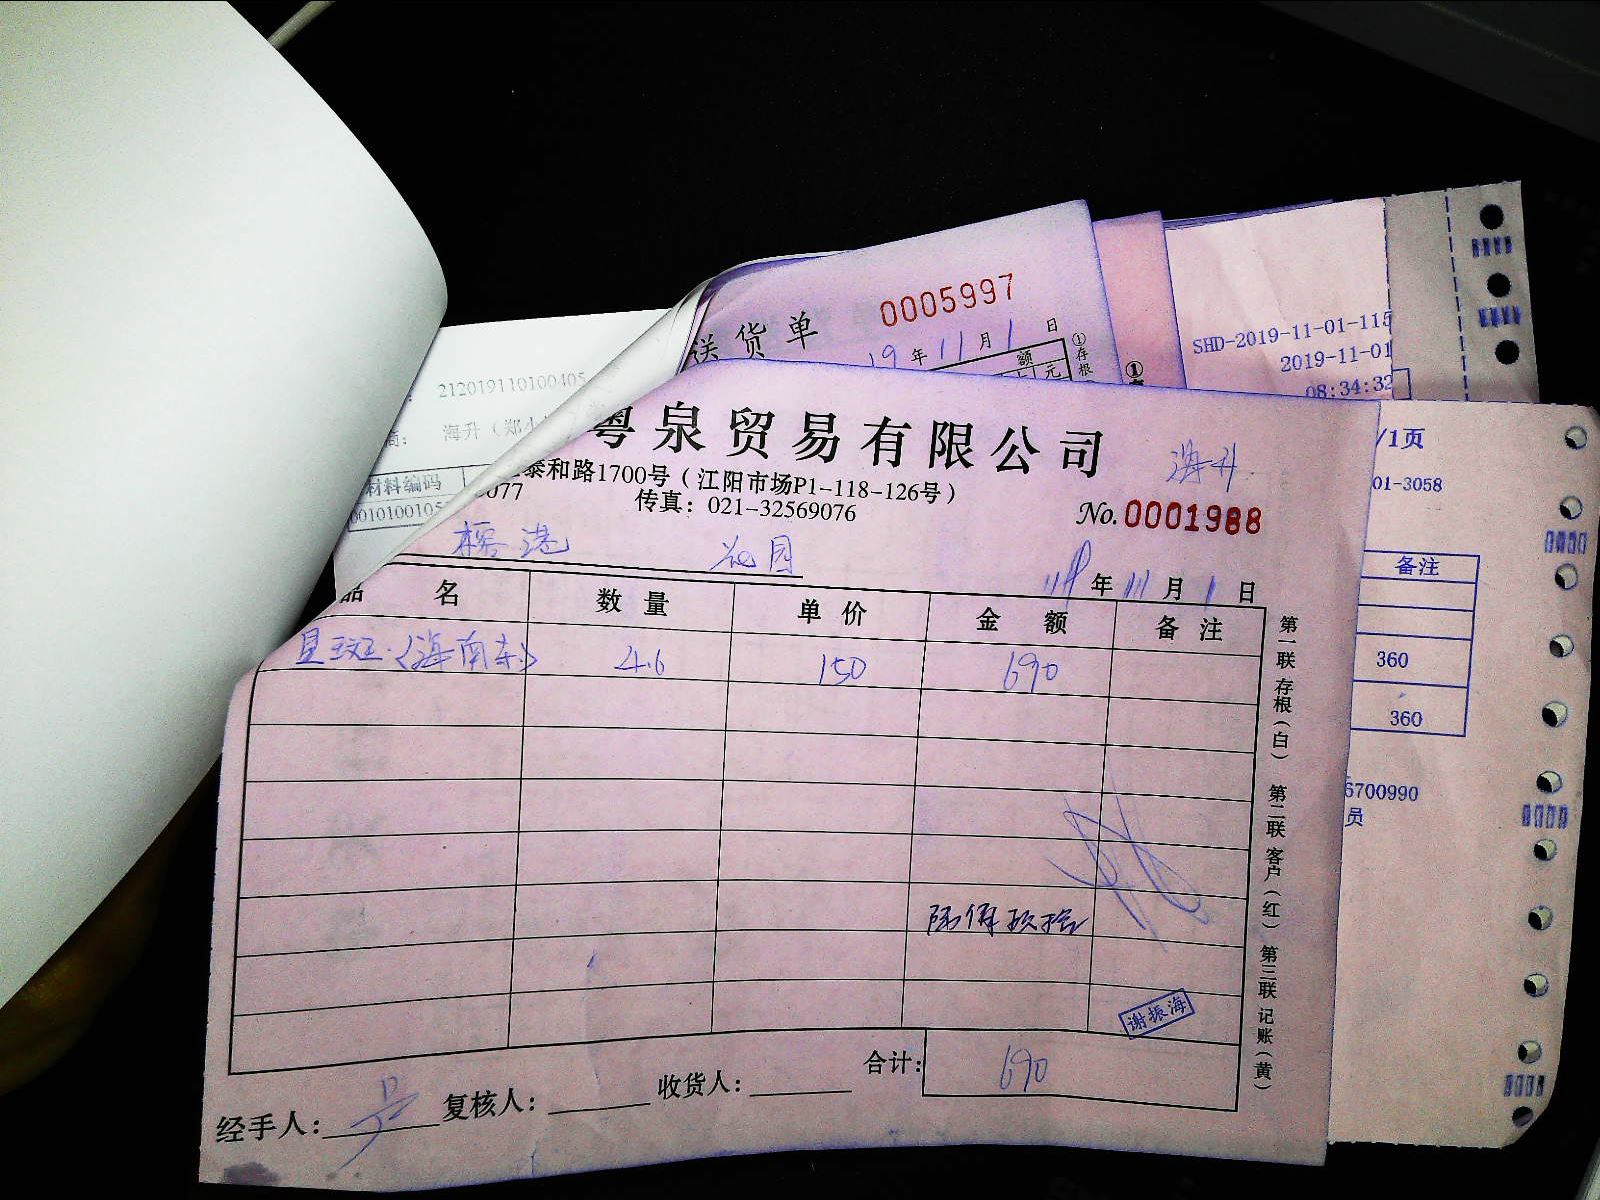 送货单
0005997
19年11月1日
额
元
①存根
①
SHD-2019-11-01-115
2019-11-01
08:34:32
212019110100405
海升（郑
材料编码
0010100105
/1页
01-3058
备注
360
360
6700990
员
粤泉贸易有限公司
海升
泰和路1700号（江阳市场P1-118-126号）
6077
传真：021-32569076
No.0001988
榕港 花园
19年11月1日
品名 数量 单价 金额 备注
星斑（海南东） 4.6 150 690
陆佰玖拾
谢振海
合计： 690
经手人： 复核人： 收货人：
第一联存根（白） 第二联客户（红） 第三联记账（黄）